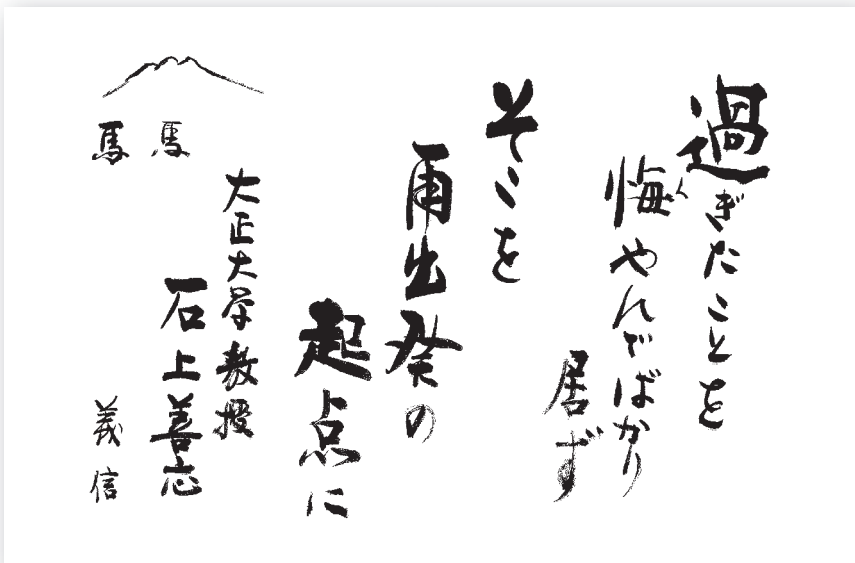 過ぎたことを
悔やんでばかり
居ず
そこを
再出発の
起点に
大正大学教授
石上善応
馬 馬
義信